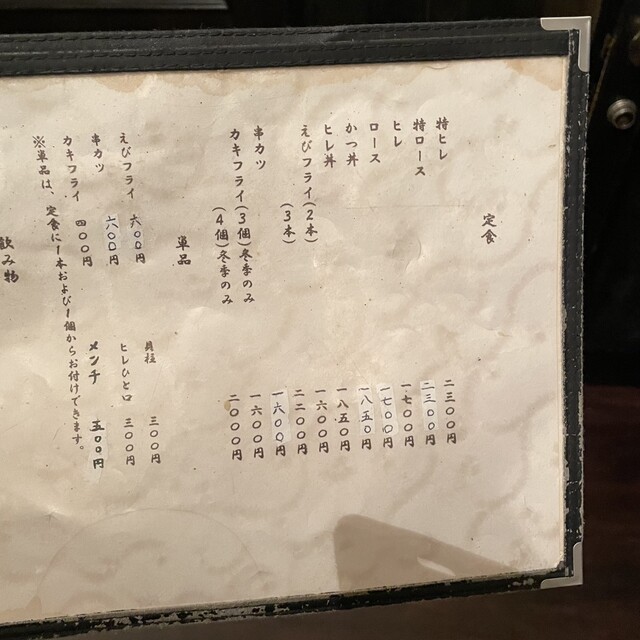 定食
特ヒレ 二三〇〇円
特ロース 二三〇〇円
ヒレ 一七〇〇円
ロース 一七〇〇円
かつ丼 一八五〇円
ヒレ丼 一八五〇円
えびフライ(2本) 一六〇〇円
(3本) 二二〇〇円
串カツ 一六〇〇円
カキフライ(3個)冬季のみ 一六〇〇円
(4個)冬季のみ 二〇〇〇円
単品
えびフライ 六〇〇円 貝柱 三〇〇円
串カツ 六〇〇円 ヒレひと口 三〇〇円
カキフライ 四〇〇円 メンチ 五〇〇円
※単品は、定食に1本および1個からお付けできます。
飲み物